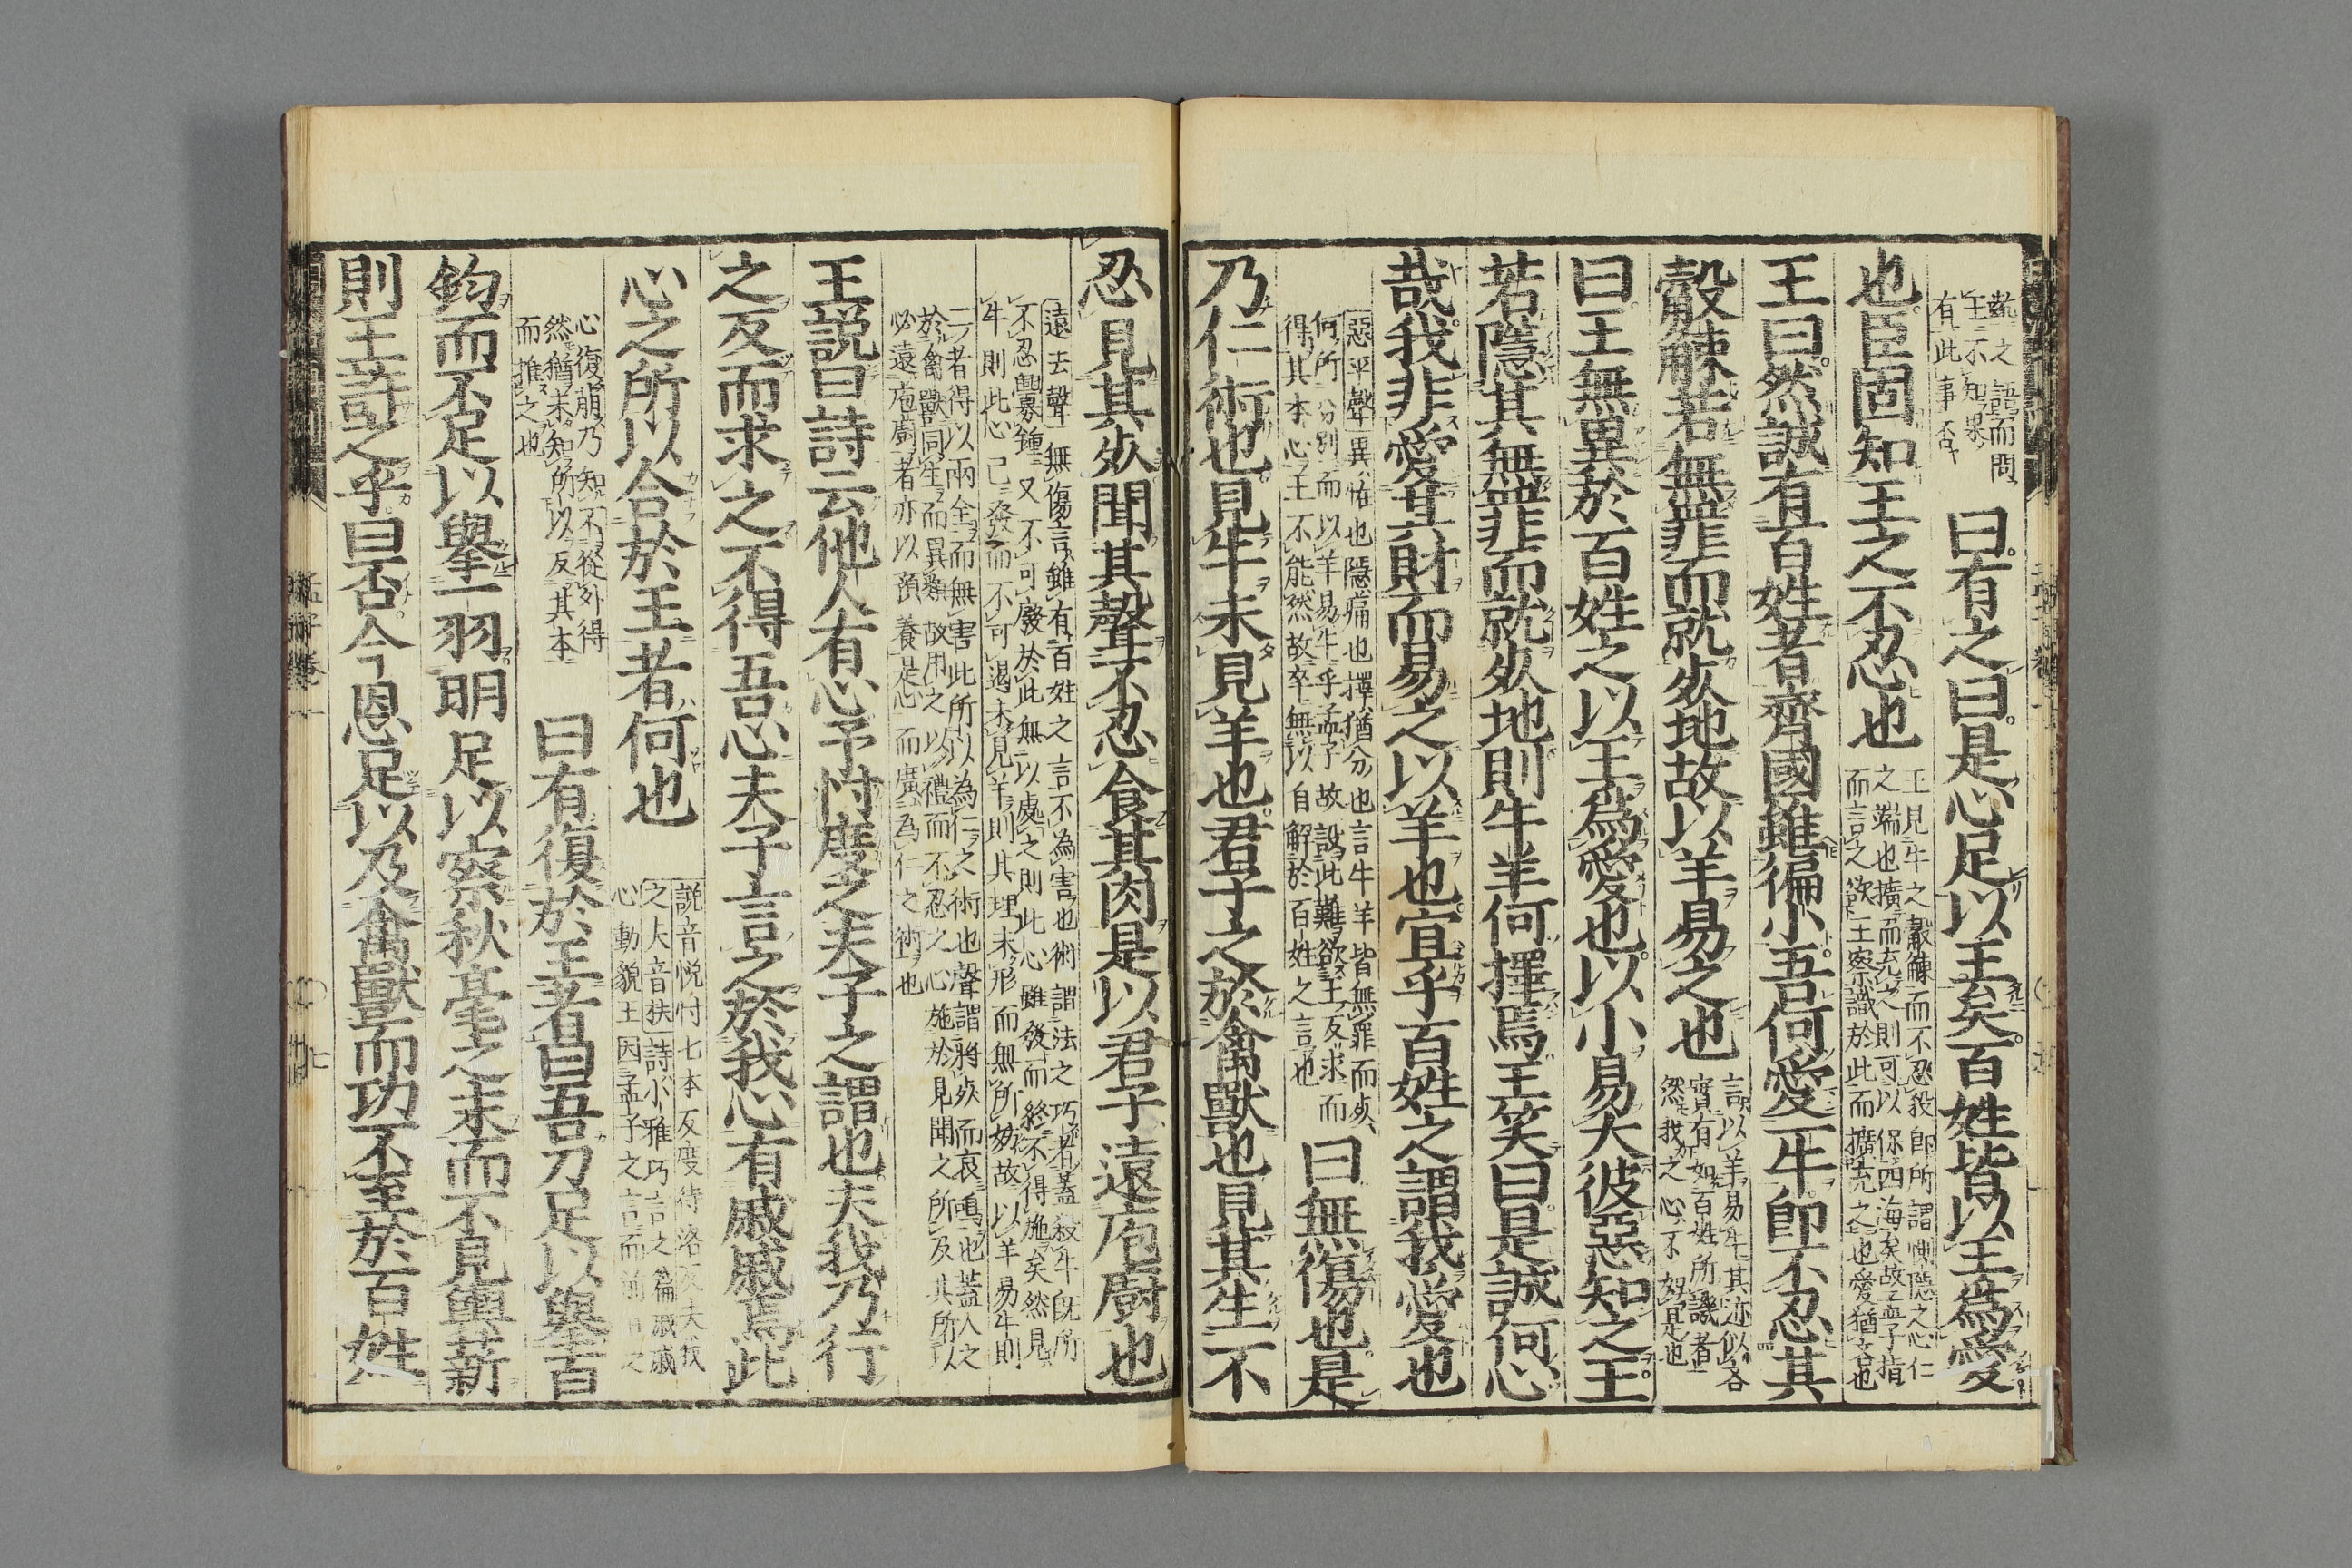 虀之語而問
王不知果
有此事否
曰有之曰是心足以王矣百姓皆以王爲愛
也臣固知王之不忍也
王見牛之觳觫而不忍殺即所謂惻隱之心仁
之端也擴而充之則可以保四海矣故孟子指
而言之欲王察識於此而擴充之也愛猶吝也
王曰然誠有百姓者齊國雖褊小吾何愛一牛即不忍其
觳觫若無罪而就死地故以羊易之也
言以羊易牛其迹似吝
實有如百姓所譏者
然我之心不如是也
曰王無異於百姓之以王爲愛也以小易大彼惡知之王
若隱其無罪而就死地則牛羊何擇焉王笑曰是誠何心
哉我非愛其財而易之以羊也宜乎百姓之謂我愛也
惡平聲異怪也隱痛也擇猶分也言牛羊皆無罪而死
何所分別而以羊易牛乎孟子故設此難欲王反求而
得其本心王不能然故卒無以自解於百姓之言也
曰無傷也是
乃仁術也見牛未見羊也君子之於禽獸也見其生不
忍見其死聞其聲不忍食其肉是以君子遠庖廚也
遠去聲無傷言雖有百姓之言不為害也術謂法之巧者蓋殺牛既所
不忍釁鐘又不可廢於此無以處之則此心雖發而終不得施矣然見
牛則此心已發而不可遏未見羊則其理未形而無所妨故以羊易牛則
二者得以兩全而無害此所以為仁之術也聲謂將死而哀鳴也蓋人之
於禽獸同生而異類故用之以禮而不忍之心施於見聞之所及其所以
必遠庖廚者亦以預養是心而廣為仁之術也
王説曰詩云他人有心予忖度之夫子之謂也夫我乃行
之反而求之不得吾心夫子言之於我心有戚戚焉此
心之所以合於王者何也
説音悦忖七本反度待洛反夫我
之夫音扶詩小雅巧言之篇戚戚
心動貌王因孟子之言而前日之
心復萌乃知不從外得
然猶未知所以反其本
而推之也
曰有復於王者曰吾力足以舉百
鈞而不足以舉一羽明足以察秋毫之末而不見輿薪
則王許之乎曰否今恩足以及禽獸而功不至於百姓